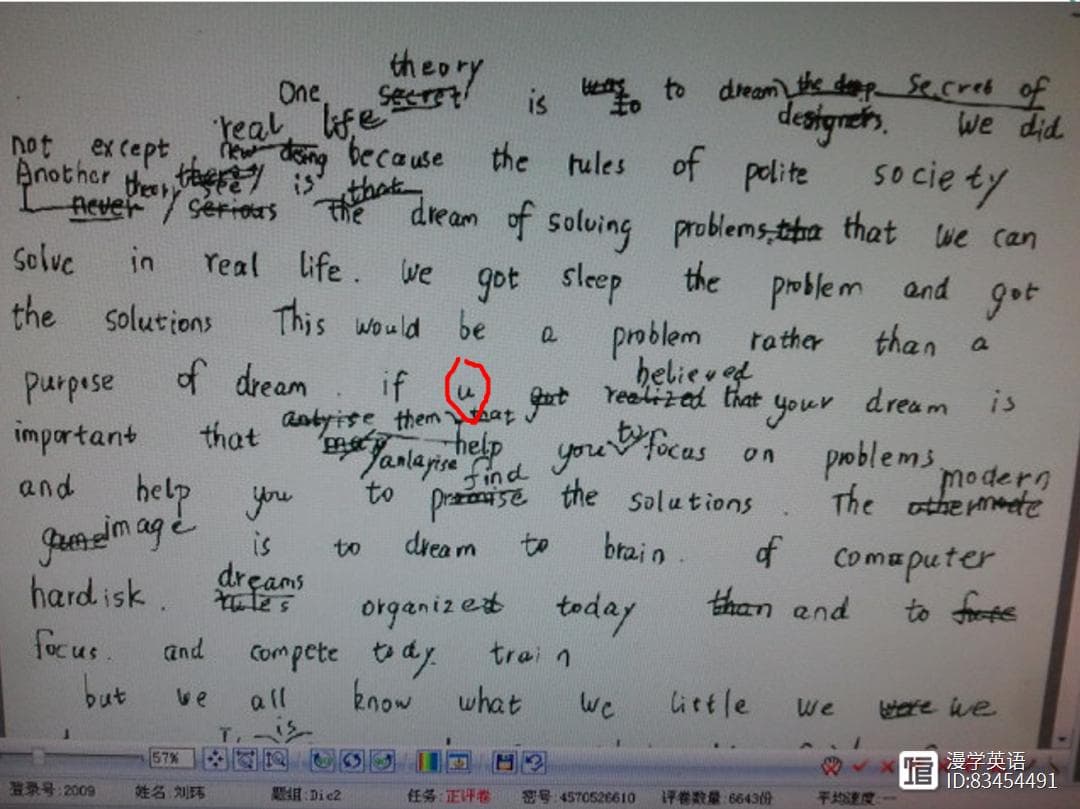 theory
One secret is was to to dream the deep Secret of
designers. We did
real life
not except new desing because the rules of polite society
Another theory is that
never / serious the dream of solving problems, tha that we can
solve in real life. We got sleep the problem and got
the solutions This would be a problem rather than a
purpose of dream. if u got realized believed that your dream is
important that anlyise them that help you to focus on problems
many /anlayise find
and help you to promise the solutions. The modern
game image is to dream to brain. of comaputer
hardisk. dreams rules organizet today than and to
focus. and compete tody. train
but we all know what we little we were we
is
57%
登录号:2009 姓名:刘玮 题组:Dic2 任务:正评卷 密号:4570526610 评卷数量:6643份 平均速度:
漫学英语
ID:83454491